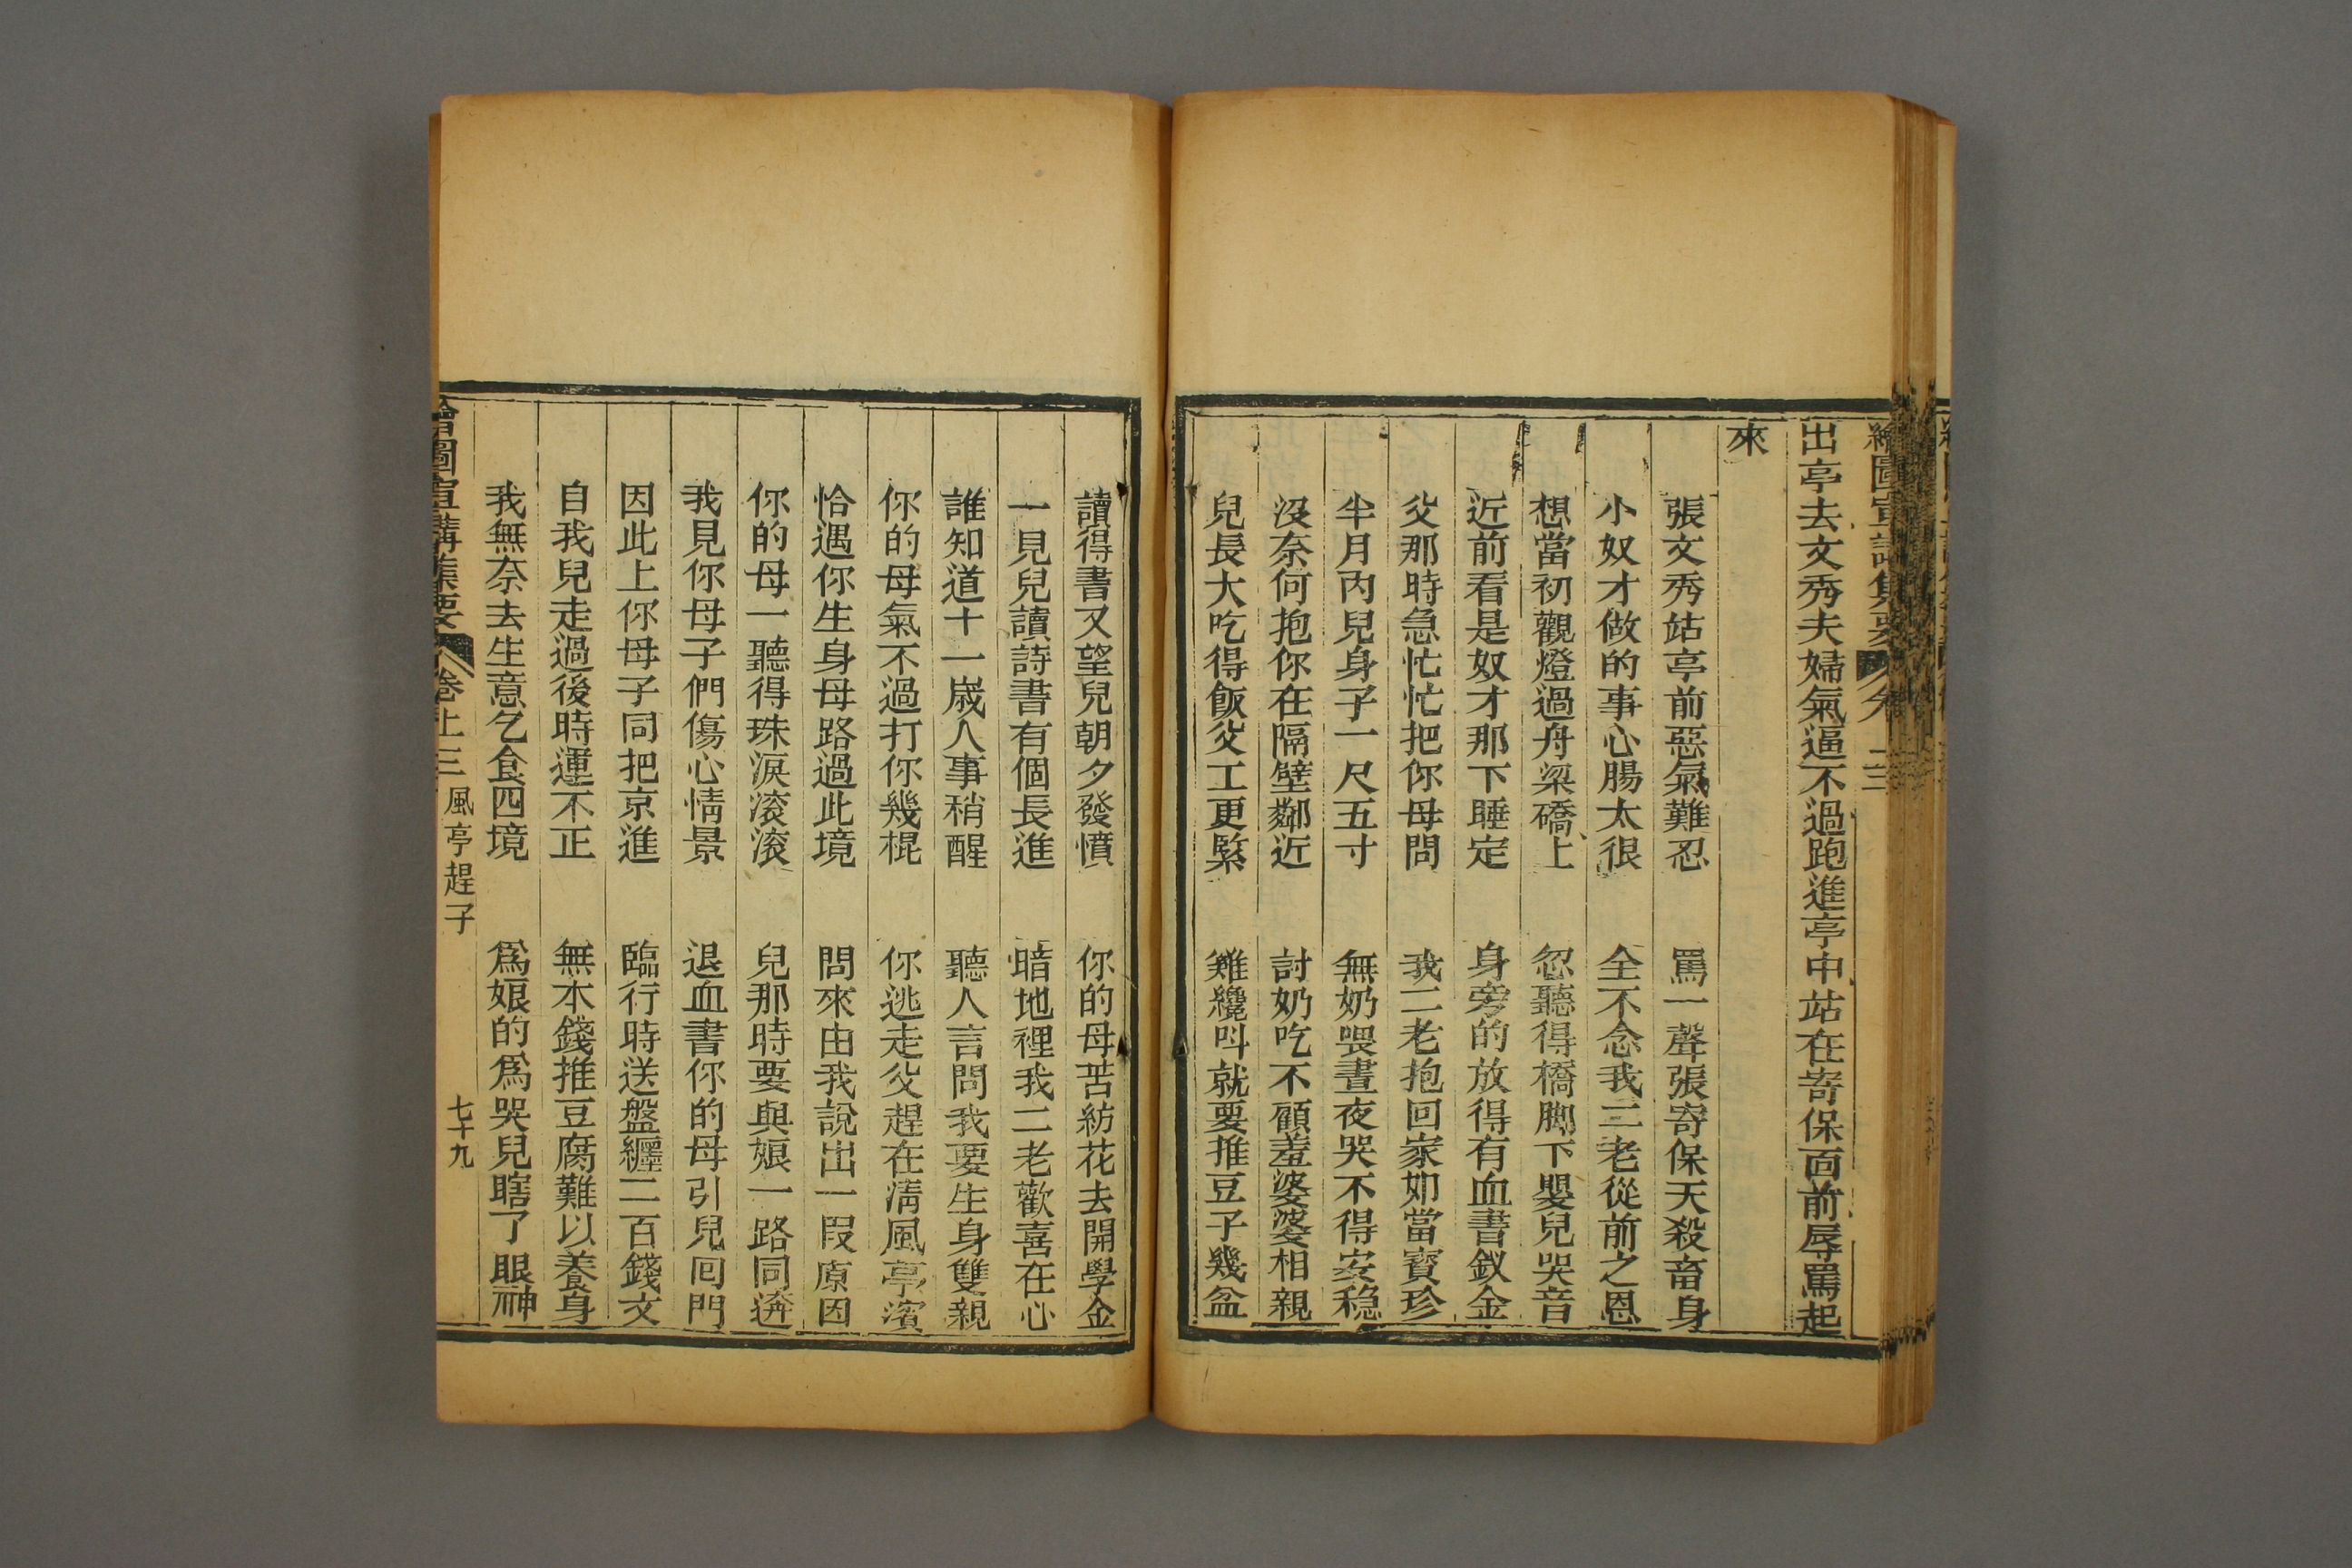 出亭去文秀夫婦氣逼不過跑進亭中站在寄保面前辱罵起
來
張文秀站亭前惡氣難忍　罵一聲張寄保天殺畜身
小奴才做的事心腸太很　全不念我二老從前之恩
想當初觀燈過舟梁礄上　忽聽得橋脚下嬰兒哭音
近前看是奴才那下睡定　身旁的放得有血書釵金
父那時急忙忙把你母問　我二老抱回家如當寶珍
半月內兒身子一尺五寸　無奶喂晝夜哭不得安稳
沒奈何抱你在隔壁鄰近　討奶吃不顧羞婆婆相親
兒長大吃得飯父工更緊　雞纔呌就要推豆子幾盆
讀得書又望兒朝夕發憤　你的母苦紡花去開學金
一見兒讀詩書有個長進　暗地裡我二老歡喜在心
誰知道十一歲人事稍醒　聽人言問我要生身雙親
你的母氣不過打你幾棍　你逃走父趕在清風亭濱
恰遇你生身母路過此境　問來由我說出一叚原因
你的母一聽得珠淚滚滚　兒那時要與娘一路同逩
我見你母子們傷心情景　退血書你的母引兒囘門
因此上你母子同把京進　臨行時送盤纏二百錢文
自我兒走過後時運不正　無本錢推豆腐難以養身
我無奈去生意乞食四境　爲娘的爲哭兒瞎了眼神
繪圖宣講集要　卷上三　風亭趕子　七十九